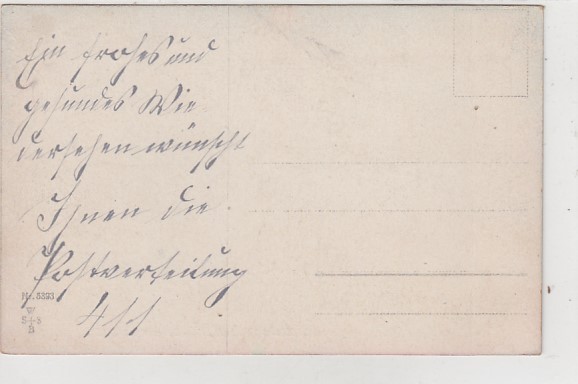 Ein frohes und
gesundes Wie
dersehen wünscht
Ihnen die
Postverteilung
411
Nr. 3393
W
S+S
B